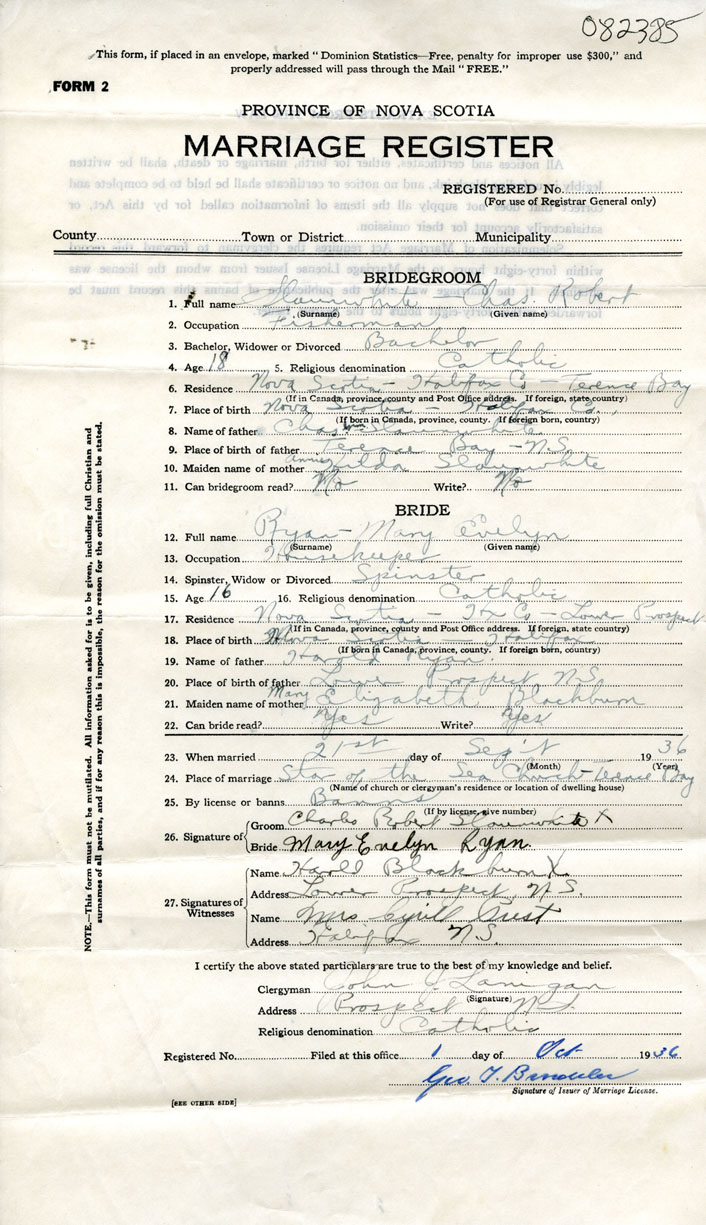 082385
This form, if placed in an envelope, marked "Dominion Statistics—Free, penalty for improper use $300," and
properly addressed will pass through the Mail "FREE."
FORM 2
PROVINCE OF NOVA SCOTIA
MARRIAGE REGISTER
REGISTERED No.
(For use of Registrar General only)
County Town or District Municipality
BRIDEGROOM
1. Full name Slaunwhite Chas. Robert
(Surname) (Given name)
2. Occupation Fisherman
3. Bachelor, Widower or Divorced Bachelor
4. Age 18 5. Religious denomination Catholic
6. Residence Nova Scotia - Halifax Co - Terence Bay
(If in Canada, province, county and Post Office address. If foreign, state country)
7. Place of birth Nova Scotia - Halifax Co.,
(If born in Canada, province, county. If foreign born, country)
8. Name of father Chas Slaunwhite
9. Place of birth of father Terence Bay - N.S.
10. Maiden name of mother Annie Hilda Slaunwhite
11. Can bridegroom read? No Write? No
BRIDE
12. Full name Ryan - Mary Evelyn
(Surname) (Given name)
13. Occupation Housekeeper
14. Spinster, Widow or Divorced Spinster
15. Age 16 16. Religious denomination Catholic
17. Residence Nova Scotia - Hx Co - Lower Prospect
(If in Canada, province, county and Post Office address. If foreign, state country)
18. Place of birth Nova Scotia - Halifax
(If born in Canada, province, county. If foreign born, country)
19. Name of father Harold Ryan.
20. Place of birth of father Lower Prospect N.S.
21. Maiden name of mother Mary Elizabeth Blackburn
22. Can bride read? Yes Write? Yes
23. When married 21st day of Sep't 1936
(Month) (Year)
24. Place of marriage Star of the Sea Church - Terence Bay
(Name of church or clergyman's residence or location of dwelling house)
25. By license or banns Banns
(If by license, give number)
26. Signature of Groom Charles Robert Slaunwhite X
Bride Mary Evelyn Ryan.
27. Signatures of Witnesses
Name Harold Blackburn X
Address Lower Prospect, N.S.
Name Mrs Cyrill
Address Halifax N.S.
I certify the above stated particulars are true to the best of my knowledge and belief.
Clergyman John J. Lanigan
(Signature)
Address Prospect N.S.
Religious denomination Catholic
Registered No. Filed at this office 1 day of Oct 1936
Geo. T.
Signature of Issuer of Marriage License.
[SEE OTHER SIDE]
NOTE.—This form must not be mutilated. All information asked for is to be given, including full Christian and
surnames of all parties, and if for any reason this is impossible, the reason for the omission must be stated.